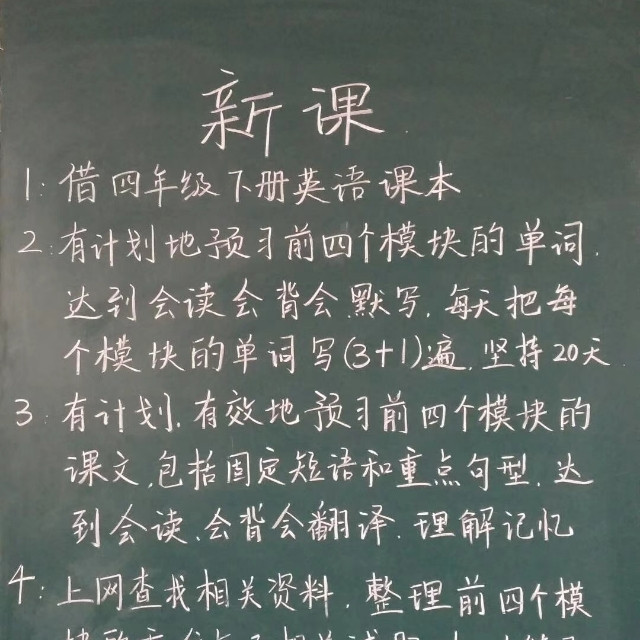 新课
1: 借四年级下册英语课本
2: 有计划地预习前四个模块的单词.
达到会读会背会默写. 每天把每
个模块的单词写(3+1)遍. 坚持20天
3: 有计划. 有效地预习前四个模块的
课文. 包括固定短语和重点句型. 达
到会读. 会背会翻译. 理解记忆
4: 上网查找相关资料. 整理前四个模